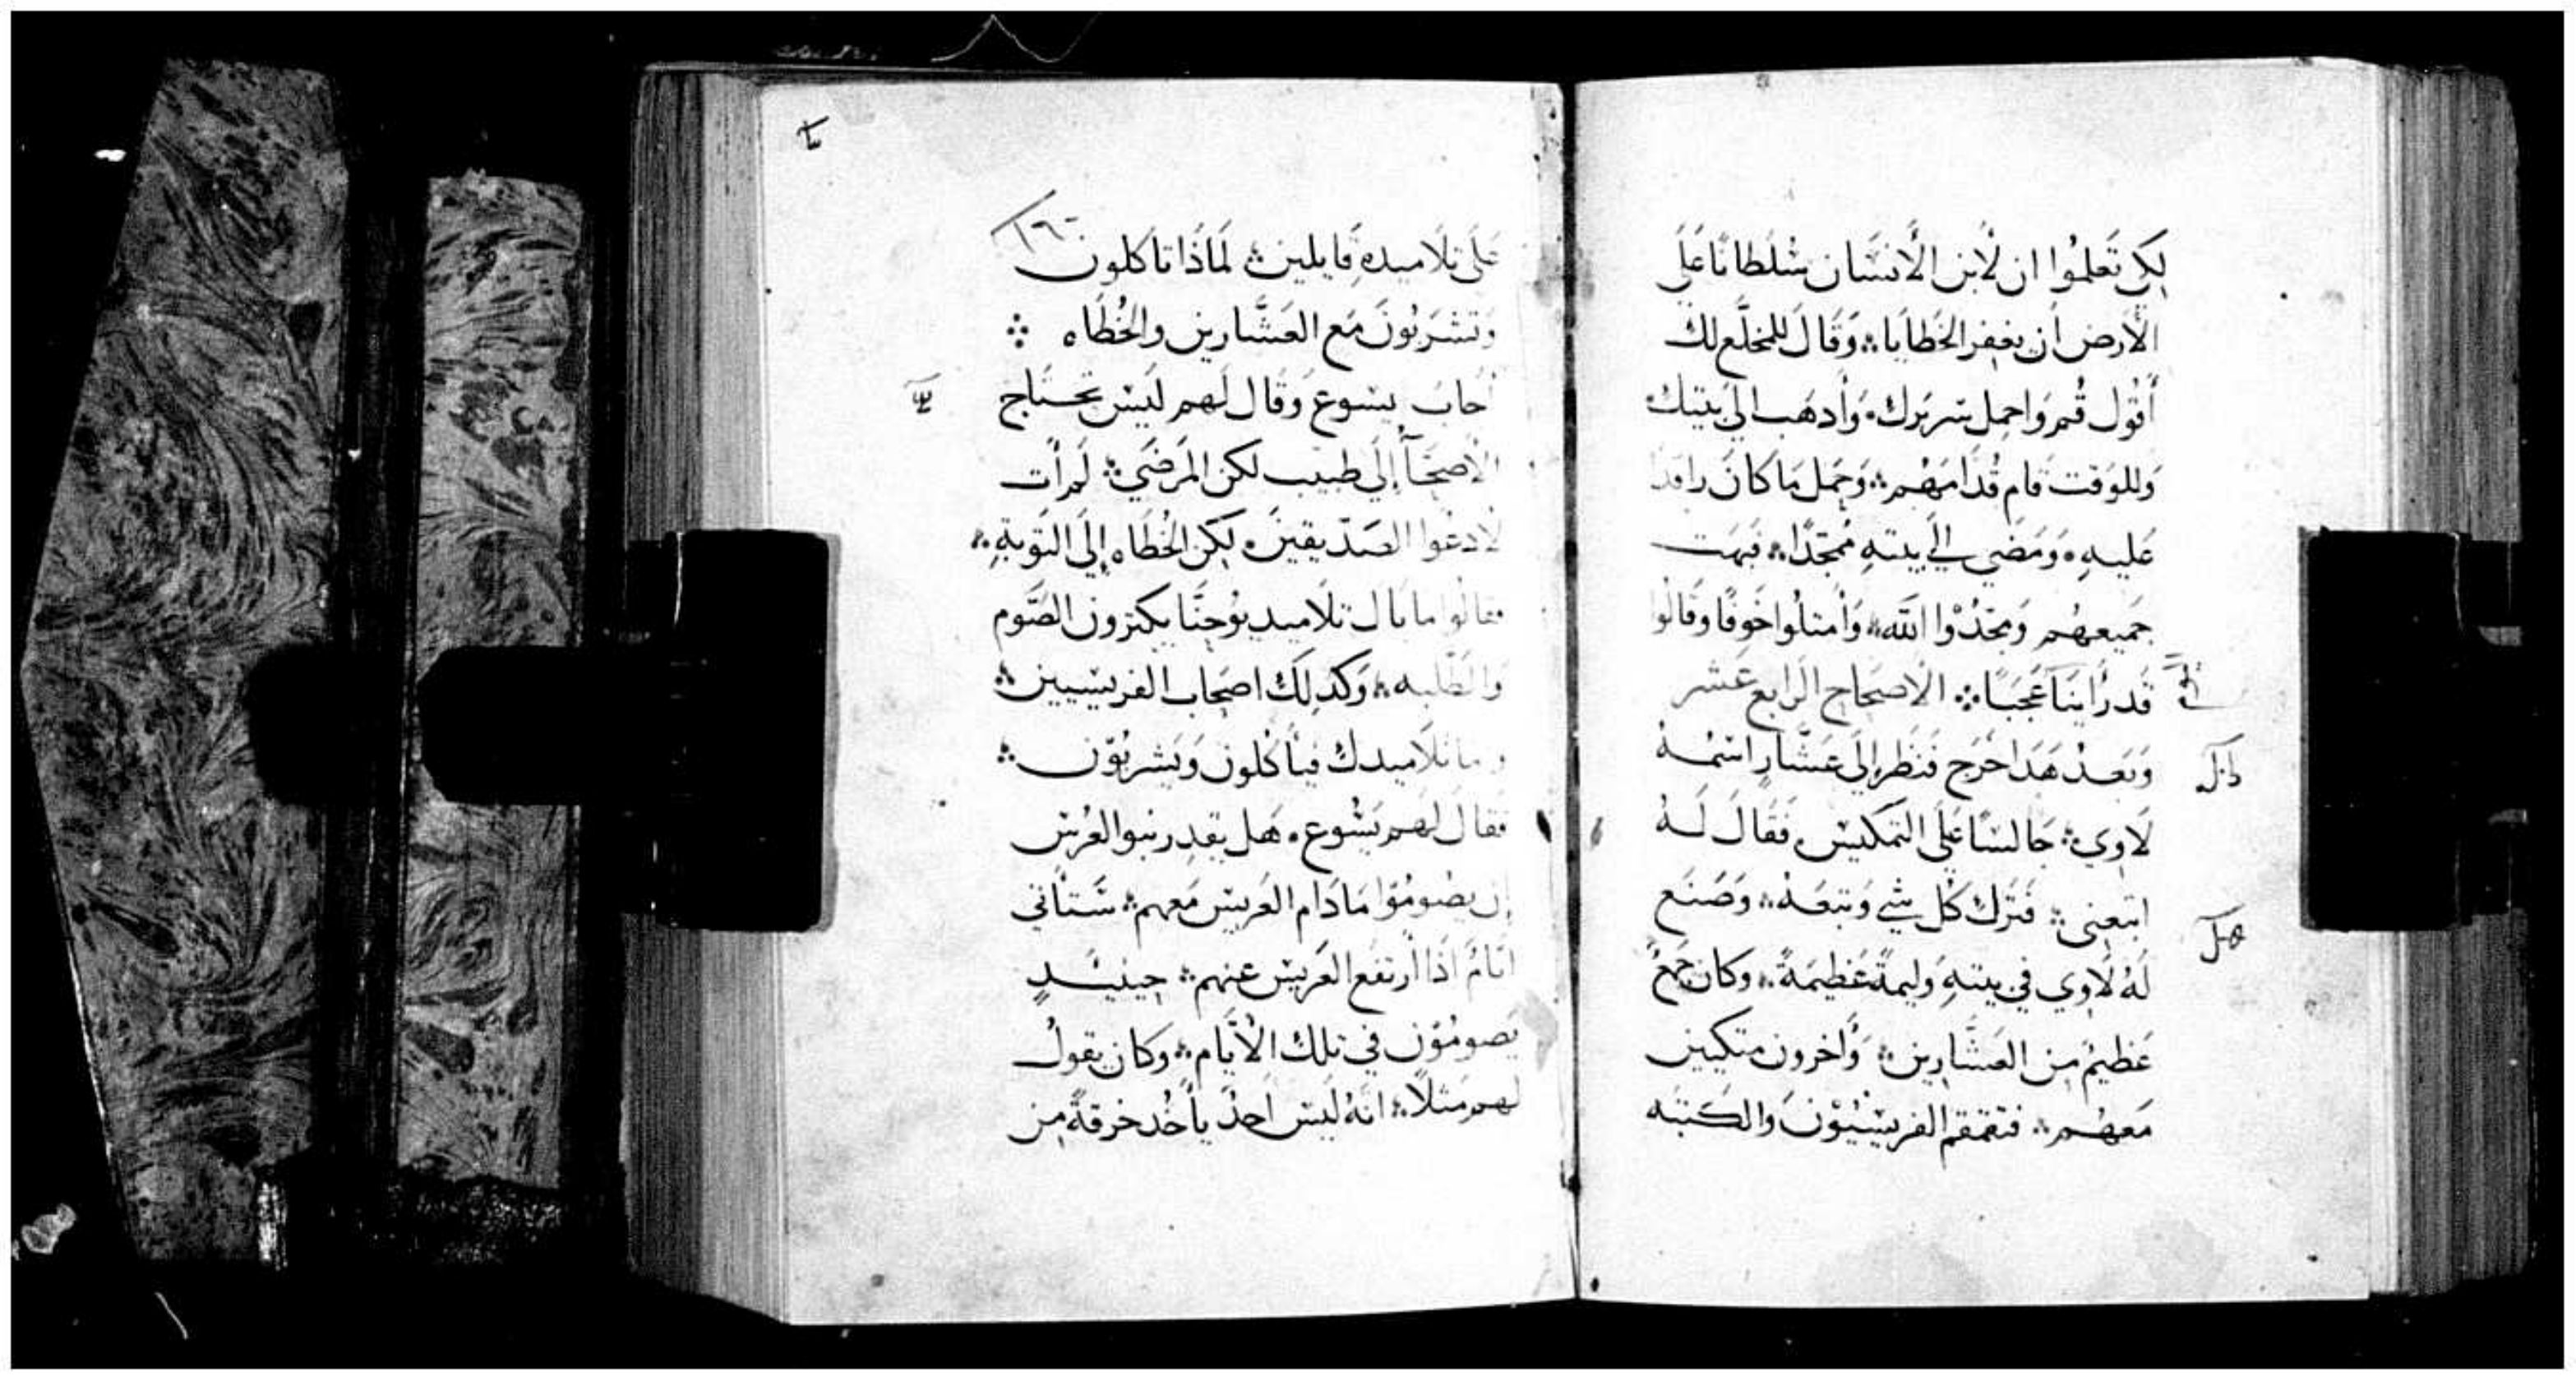 لكي تَعلمُوا ان لأبن الأنسَان سُلطانًا عَلَي
الأرض أن يغفر الخَطايا ۞ وَقَالَ للمخلَّع لك
أقُول قُم وَاحمِل سَريَرك ۰ وَأدهَب الَي بيتك
وَللوَقت قَام قُدامَهُم ۞ وَحَمل مَا كانَ راقدًا
عَليهِ ۰ وَمَضي الي بيتهِ مُمجّدًا ۞ فبهَت
جَميعهُم وَمجّدُوْا الله ۞ وَأمتلُوا خَوفًا وقَالوا
قَد رَأينَا عَجَبًا ۞ الأصحَاح الرابع عَشر
وَبَعدْ هَدَا خَرَج فنَظَر إلَي عَشَّارٍ اسمُهُ
لَاوِي ۞ جَالسًا عَلَي التمَكيس ۰ فَقَالَ لهُ
اتبَعِني ۞ فَتَرك كُل شَي وَتبَعهُ ۞ وَصَنَع
لَهُ لَاوِي في بيتهِ وَليمَةً عَظيمَةً ۞ وكان جمعٌ
عَظيمٌ مِن العَشَّارِين ۞ وَأخرون متكيين
مَعهُم ۞ فتقمقم الفرِيسْيُوْنَ والكَتبَه
١٦٠
عَلَي تلَاميدهِ قَايلين ۞ لمَاذَا تاكلون
وَتشرَبُونَ مَع العَشَّارين والخُطَاه ۞
أجَابَ يسَوع وَقَال لَهم ليَسَ تحتَاج
الأصِحَآ إلَي طبيب لكن المَرضَي ۞ لَم أت
لأدعُوا الصَدّيقينَ ۰ لكِن الخُطَاه إلَي التوَبةِ ۞
فقالُوا ما بَال تلَاميد يُوحنَّا يكترون الصَّوم
وَالطَلبه ۞ وَكدلِكَ اصحَاب الفريسيين ۞
وَاما تلَاميدك فيَأكلُون وَيَشربُوْن ۞
فقَال لهم يَسُوع ۰ هَل يقدِر بَنوا العُرس
إن يصُومُوْا مَا دَام العَريس مَعهم ۞ سَتَأتي
ايَامٌ اذَا أرتفع العَريس عنهم ۞ حِينَيدٍ
يَصومُوْن في تلك الأيَّام ۞ وكان يقولُ
لهم مَثلًا ۞ انَهُ ليَسَ احَدْ يَأخُد خرقةً مِن